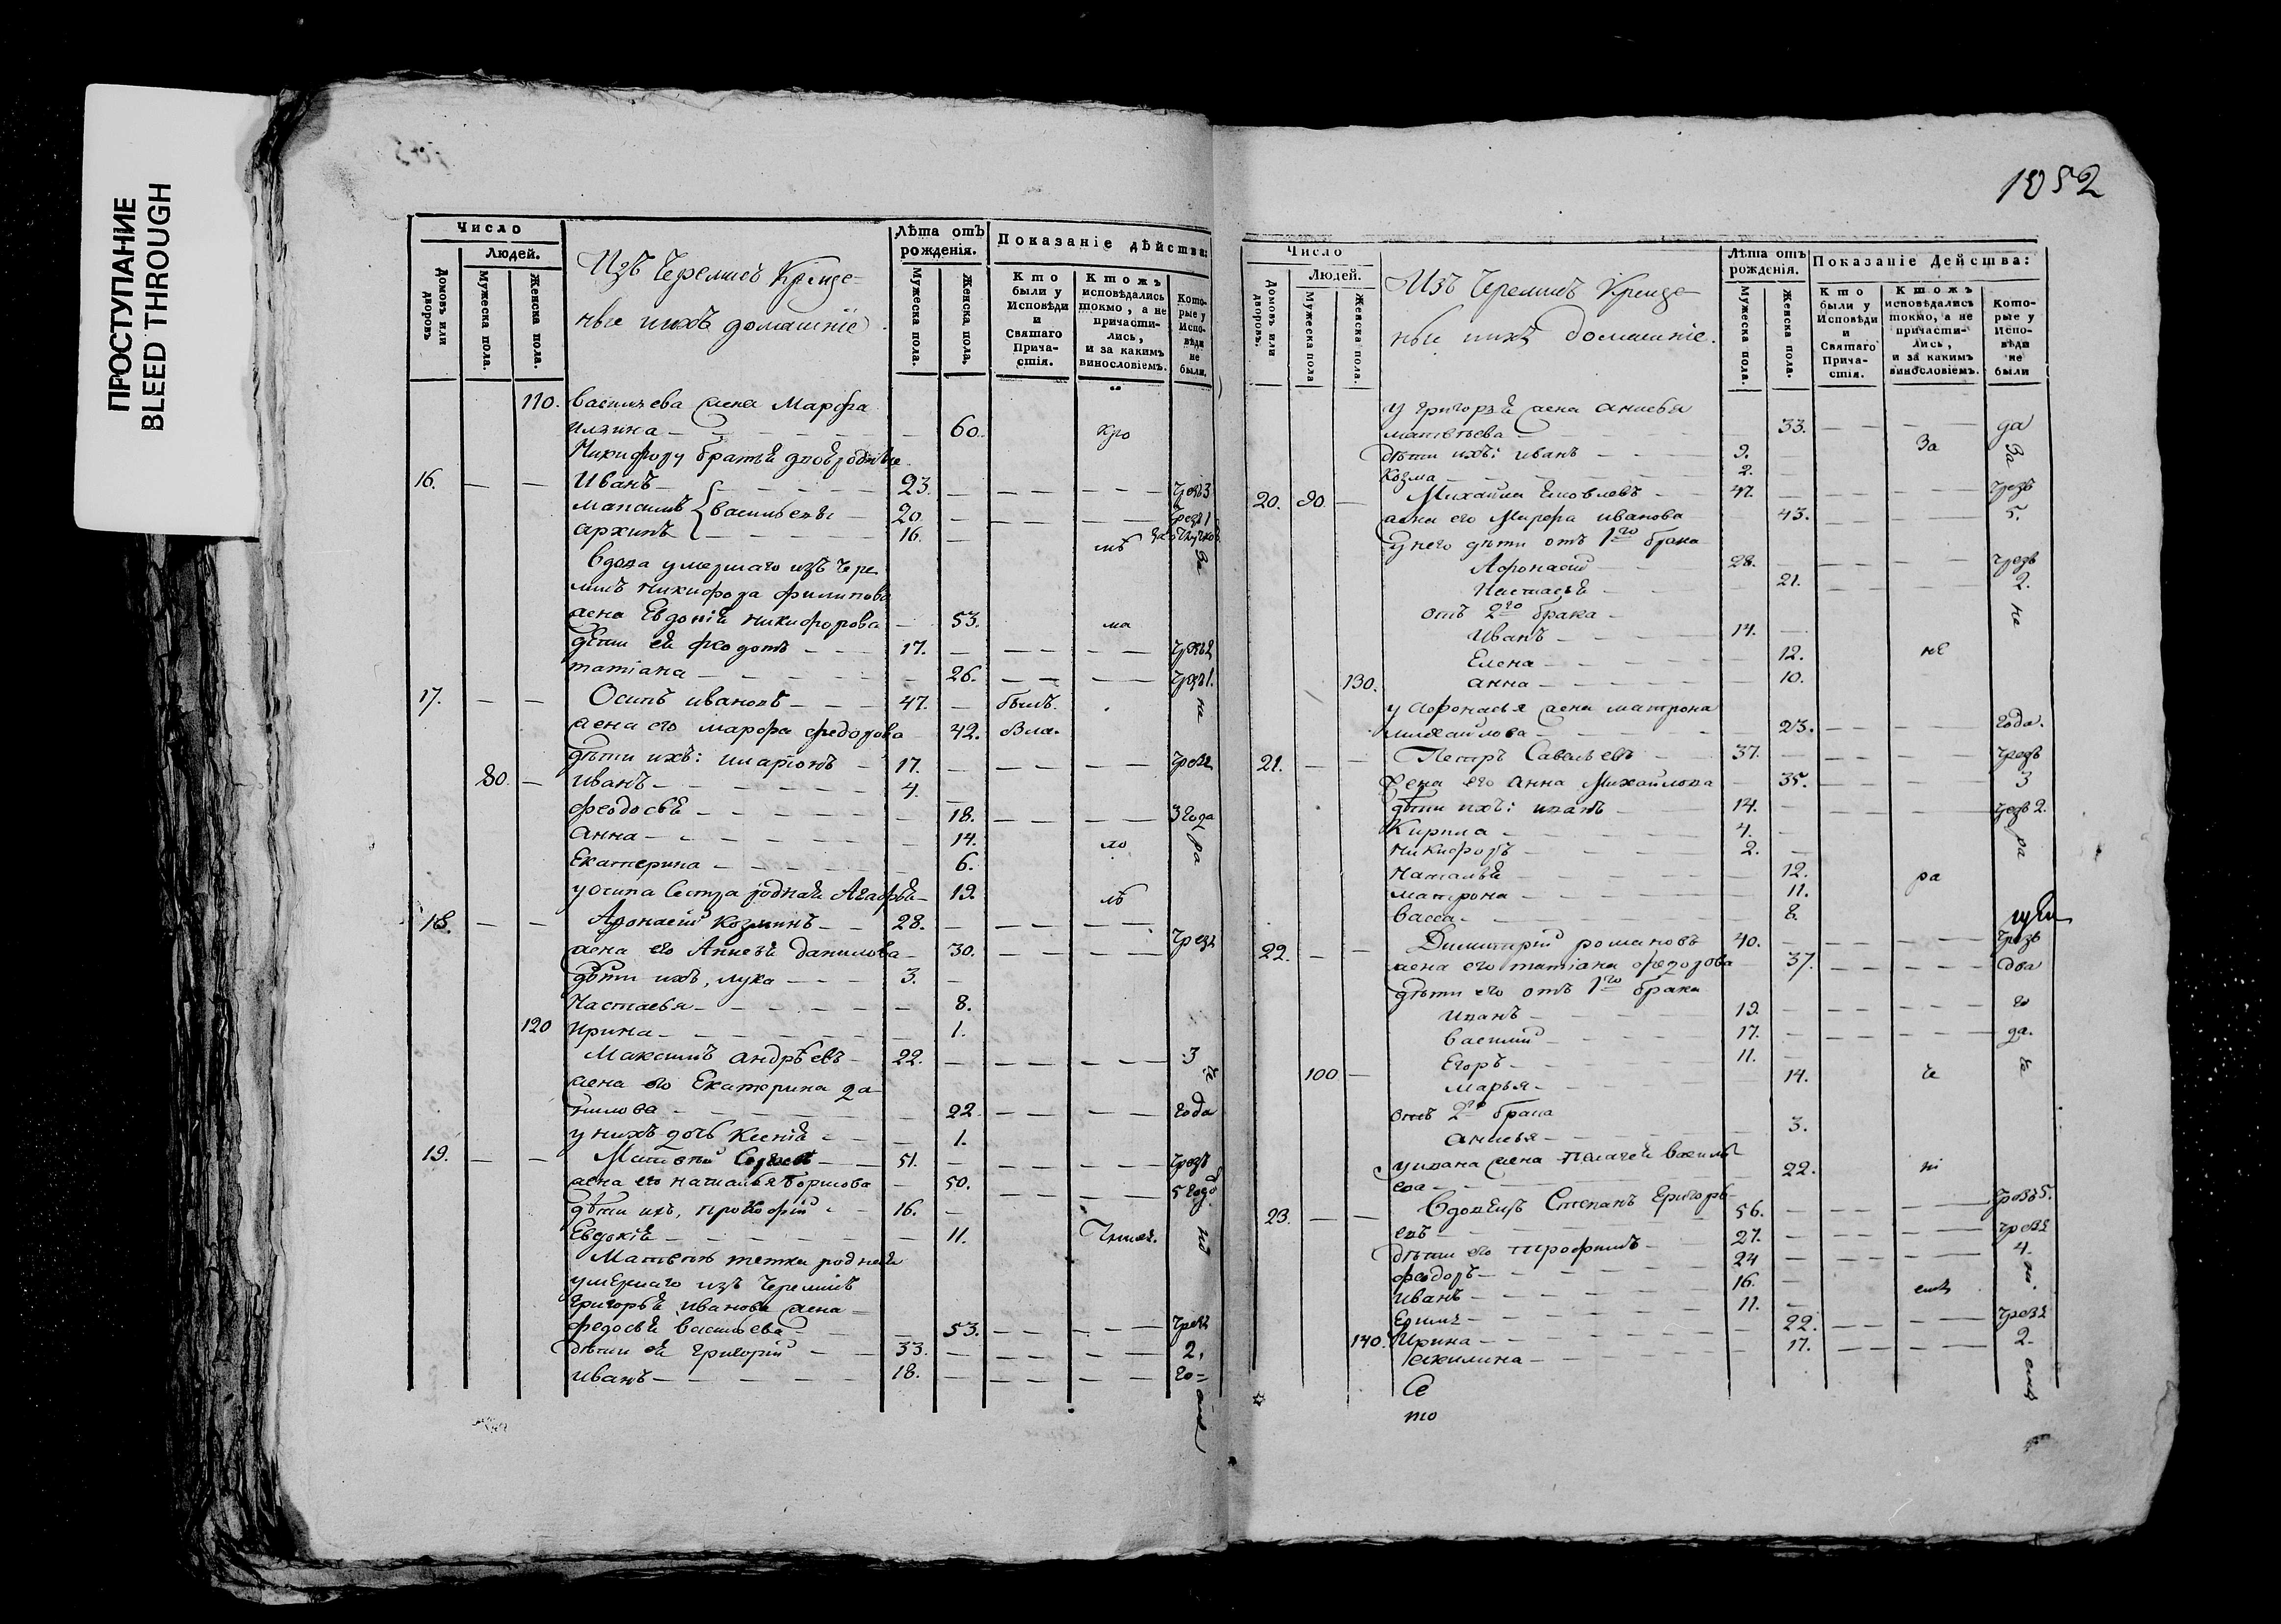 ПРОСТУПАНИЕ
BLEED THROUGH
Число
Людей.
Домовъ или дворовъ.
Мужеска пола.
Женска пола.
Изъ Черемисъ Креще-
ные ихъ домашніе
Лѣта отъ рожденія.
Мужеска пола.
Женска пола.
Показаніе дѣйства:
Кто были у Исповѣди и Святаго Прича-стія.
Ктожъ исповѣдались токмо, а не причасти-лись, и за какимъ винословіемъ.
Кото-рые у Испо-вѣди не были.
110. Васильева жена Марфа
Ильина — 60. кро
Никифору братья двоюродные
16. — — Иванъ — 23. — чрезъ 3
Максимъ Васильевы — 20. — чрезъ 1
архипъ — 16. — мъ
Вдова умершаго изъ Чере
мисъ Никифора Филипова
жена Евдокія Никифорова — 53. ма
дѣти ея Феодотъ — 17. — чрезъ 2
татіана — 26. — чрезъ 1.
17. — — Осипъ ивановъ — 47. — былъ.
жена его марфа федорова 42. была.
дѣти ихъ: иларіонъ — 17. — чрезъ
80. — Иванъ — 4. —
феодосья — 18. — 3 года
Анна — 14. ло
Екатерина — 6. ра
у осипа Сестра родная Агафья — 19. лѣ
18. — — Афонасій козминъ — 28. —
жена его Анисья данилова — 30. — чрезъ
дѣти ихъ, лука — 3. —
Настасья — 8.
120 ирина — 1.
Максимъ андрѣевъ — 22. — 3
жена его Екатерина да-
нилова — 22. — года
у нихъ дочь Ксенія — 1.
19. — — Матвѣй — 51. — чрезъ
жена его наталья борисова — 50. — 5 годо
дѣти ихъ, прокофій — 16. —
Евдокія — 11.
Матвѣя тетка родная
умершаго изъ Черемисъ
Григорья иванова жена —
федосья васильева — 53. — чрезъ
дѣти ея Григорій — 33. — 2,
иванъ — 18. — го=
1052
Число
Людей.
Домовъ или дворовъ.
Мужеска пола
Женска пола.
Изъ Черемисъ Креще-
ные ихъ домашніе.
Лѣта отъ рожденія.
Мужеска пола.
Женска пола.
Показаніе Дейсства:
Кто были у Исповѣди и Святаго Прича-стія.
Ктожъ исповѣдались токмо, а не причасти-лись, и за какимъ винословіемъ.
Кото-рые у Испо-вѣди не были
у григорья жена анисья
матвѣева — 33. — да
дѣти ихъ: иванъ — 9. — За За
Козма — 2. —
20. 90 — Михайла Яковлевъ — 47. — чрезъ
жена его Марфа иванова 43. — 5.
у него дѣти отъ 1го брака
Афонасій — 28. — чрезъ
Настасья — 21. — 2.
отъ 2го брака — не
иванъ — 14. —
Елена — 12. не
130. анна — 10.
у афонасья жена матрона
михайлова — 23. — года.
21. — — Петръ Савельевъ — 37. — чрезъ
жена его анна Михайлова — 35. — 3
дѣти ихъ: иванъ — 14. — чрезъ 2.
Кирила — 4. — ра
никифоръ — 2. —
наталья — 12. ра
матрона — 11.
васса — 8.
22. — — Димитрій романовъ 40. — чрезъ
жена его татіана федорова 37. — два
дѣти его отъ 1го брака
иванъ — 19. — го
василій — 17. — да.
Егоръ — 11. —
100 — Марья — 14. че
отъ 2го брака
анисья — 3.
у ивана жена пелагея василь
ева — 22. ні
23. — — Вдовецъ Степанъ Григорь — чрезъ 5.
евъ — 56. —
дѣти его трофимъ — 27. — чрезъ
феодоръ — 24 — 4.
иванъ — 16. — емъ
— 11. —
140. Ирина — 22. — чрезъ
акилина — 17. — 2.
Се
то